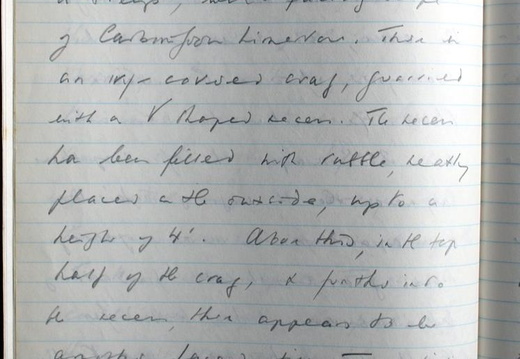 of Carboniferous Limestone. There is
an ivy-covered crag, quarried
with a V shaped recess. The recess
has been filled with rubble, neatly
placed on the outside, up to a
height of 4'. Above this, in the top
half of the crag, & further into
the recess, there appears to be
another